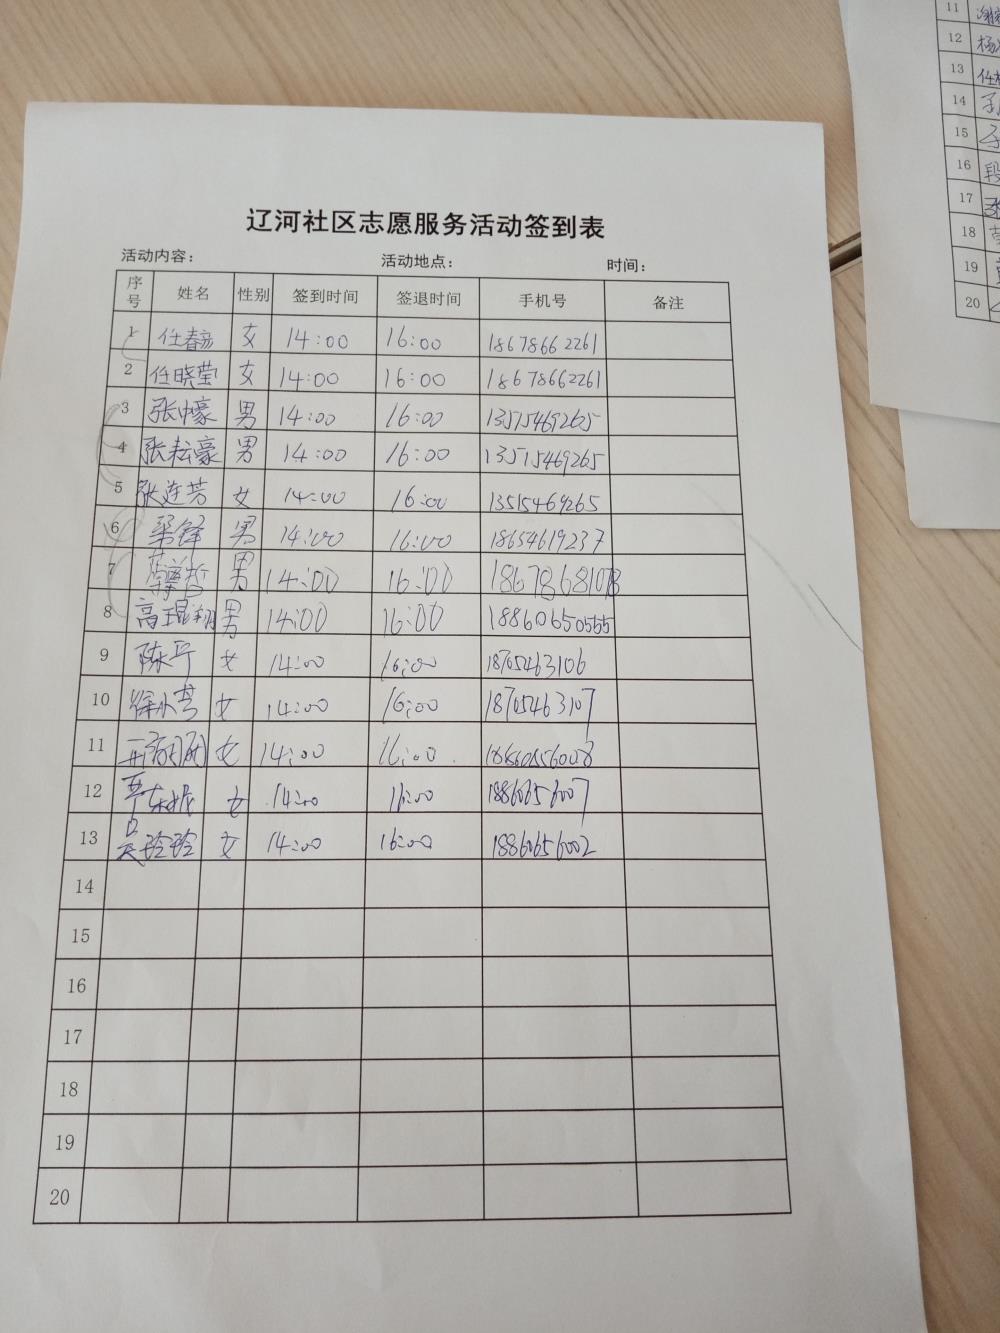 辽河社区志愿服务活动签到表
活动内容： 活动地点： 时间：
序号 姓名 性别 签到时间 签退时间 手机号 备注
1 任春彦 女 14:00 16:00 18678662261
2 任晓莹 女 14:00 16:00 18678662261
3 张中豪 男 14:00 16:00 13515469265
4 张耘豪 男 14:00 16:00 13515469265
5 张连芳 女 14:00 16:00 13515469265
6 梁铎 男 14:00 16:00 18654619237
7 男 14:00 16:00
8 高琨翔 男 14:00 16:00 18860650555
9 陈 女 14:00 16:00 18705463106
10 徐小 女 14:00 16:00 18705463107
11 女 14:00 16:00 18860656008
12 女 14:00 16:00 18860656007
13 吴玲玲 女 14:00 16:00 18860656002
14
15
16
17
18
19
20
11
12 杨
13 任
14
15
16 段
17 张
18
19
20